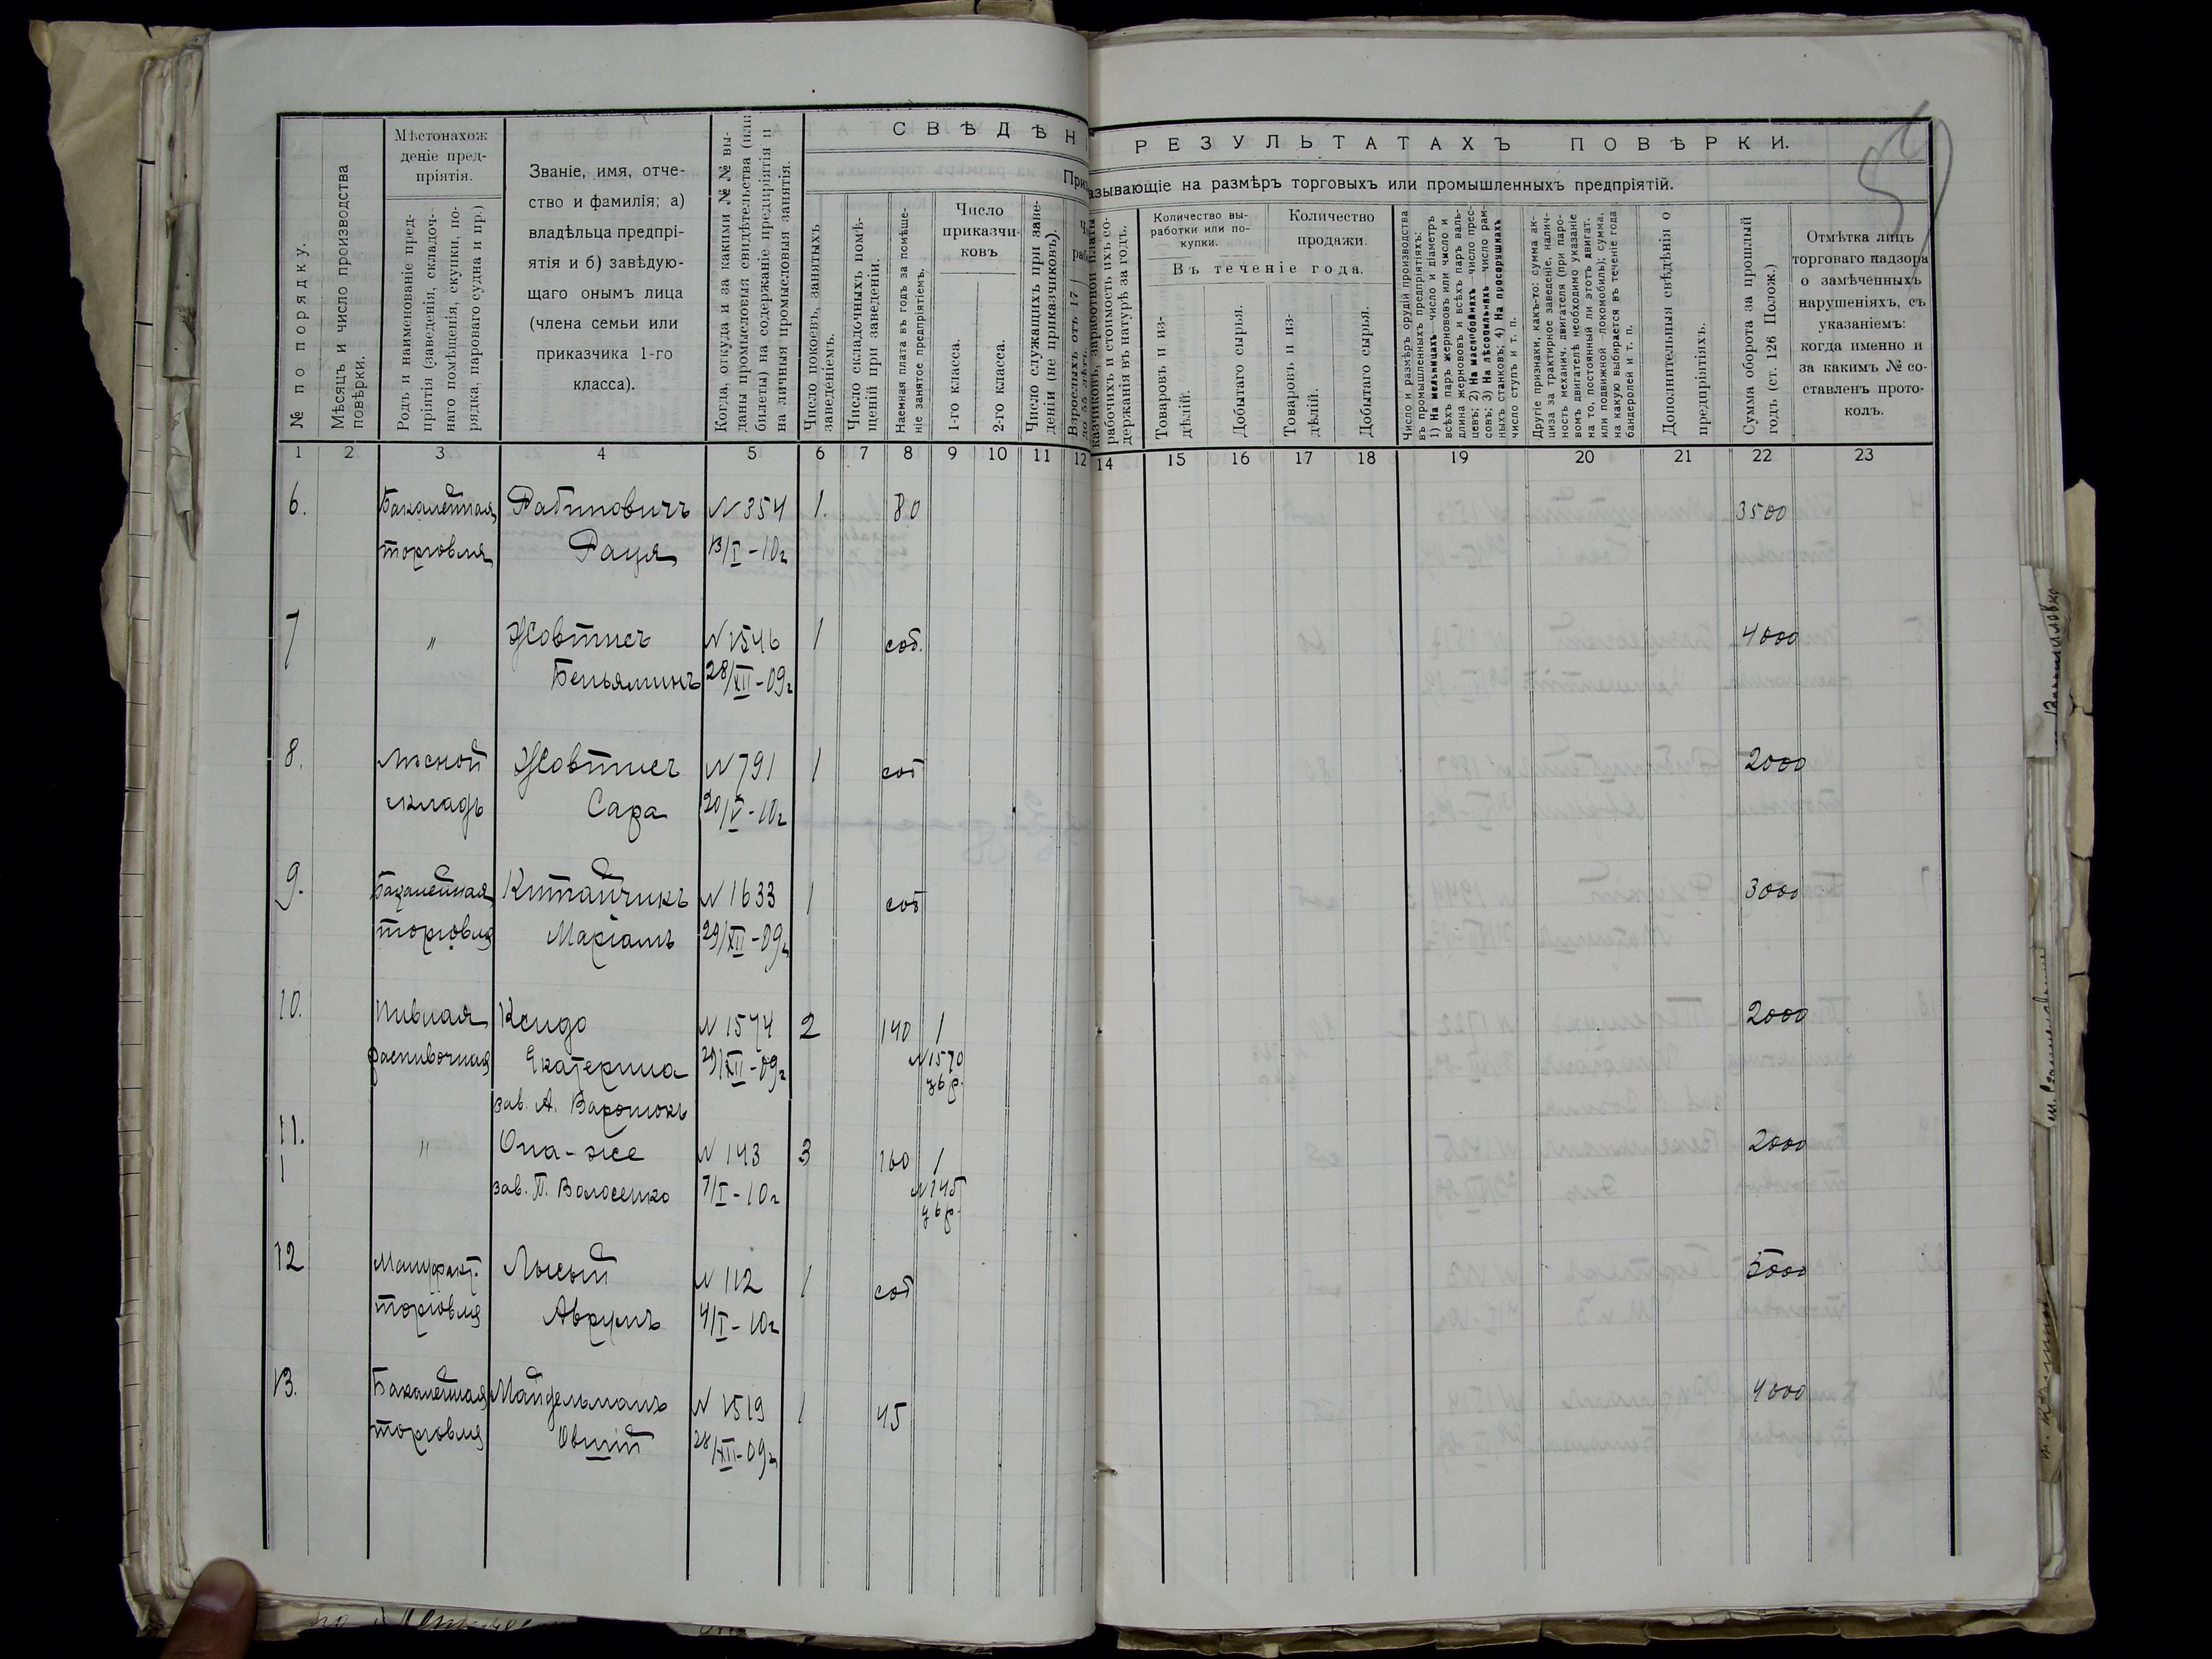 СВѢДѢН
РЕЗУЛЬТАТАХЪ ПОВѢРКИ.
азывающіе на размѣръ торговыхъ или промышленныхъ предпріятій.
№ по порядку.
Мѣсяцъ и число производства
повѣрки.
Мѣстонахож
деніе пред-
пріятія.
Родъ и наименованіе пред-
пріятія (заведенія, складоч-
наго помѣщенія, скупки, по-
рядка, пароваго судна и пр.)
Званіе, имя, отче-
ство и фамилія; а)
владѣльца предпрі-
ятія и б) завѣдую-
щаго онымъ лица
(члена семьи или
приказчика 1-го
класса).
Когда, откуда и за какими №№ вы-
даны промысловыя свидѣтельства (или
билеты) на содержаніе предпріятія и
на личныя промысловыя занятія.
Число покоевъ, занятыхъ
заведеніемъ.
Число складочныхъ помѣ-
щеній при заведеніи.
Наемная плата въ годъ за помѣще-
ніе занятое предпріятіемъ.
Число
приказчи-
ковъ
1-го класса.
2-го класса.
Число служащихъ при заве-
деніи (не приказчиковъ).
Взрослыхъ отъ 17
казчиковъ, заработной платы
рабочихъ и стоимость ихъ со-
держанія въ натурѣ за годъ.
Количество вы-
работки или по-
купки.
Количество
продажи.
Въ теченіе года.
Товаровъ и из-
дѣлій.
Добытаго сырья.
Товаровъ и из-
дѣлій.
Добытаго сырья.
Число и размѣръ орудій производства
въ промышленныхъ предпріятіяхъ:
1) На мельницахъ число и діаметръ
всѣхъ паръ жернововъ или число и
длина жернововъ и всѣхъ паръ валь-
цевъ; 2) На маслобойняхъ число прес-
совъ; 3) На лѣсопильняхъ число рам-
ныхъ станковъ; 4) На просорушкахъ
число ступъ и т. п.
Другіе признаки, какъ-то: сумма ак-
циза за трактирное заведеніе, налич-
ность механич. двигателя (при паро-
вомъ двигателѣ необходимо указаніе
на то, постоянный ли этотъ двигат.
или подвижной локомобиль); сумма,
на какую выбирается въ теченіе года
бандеролей и т. п.
Дополнительныя свѣдѣнія о
предпріятіяхъ.
Сумма оборота за прошлый
годъ (ст. 126 Полож.)
Отмѣтка лицъ
торговаго надзора
о замѣченныхъ
нарушеніяхъ, съ
указаніемъ:
когда именно и
за какимъ № со-
ставленъ прото-
колъ.
1 2 3 4 5 6 7 8 9 10 11 12 14 15 16 17 18 19 20 21 22 23
6. Бакалейная Рабиновичъ N 354 1. 80 3500
торговля Раця 13/I-10г
7 " Жовтисъ N 1546 1 соб. 4000
Беньяминъ 28/XII-09г
8. Лѣсной Жовтисъ N 791 1 соб 2000
складъ Сара 20/V-10г
9. Бакалейная Китайчикъ N 1633 1 соб 3000
торговля Маріамъ 29/XII-09г
10. Пивная Ксидо N 1574 2 140 1 2000
распивочная Екатерина 29/XII-09г N 1570
зав. А. Варонюкъ ц 6 р.
11. " Она-же N 143 3 160 1 2000
зав. П. Волосенко 7/I-10г N 145
ц 6 р.
12 Мануфакт. Лысый N 112 1 соб 5000
торговля Аврумъ 4/I-10г
13. Бакалейная Майдельманъ N 1519 1 45 4000
торговля Овшій 28/XII-09г